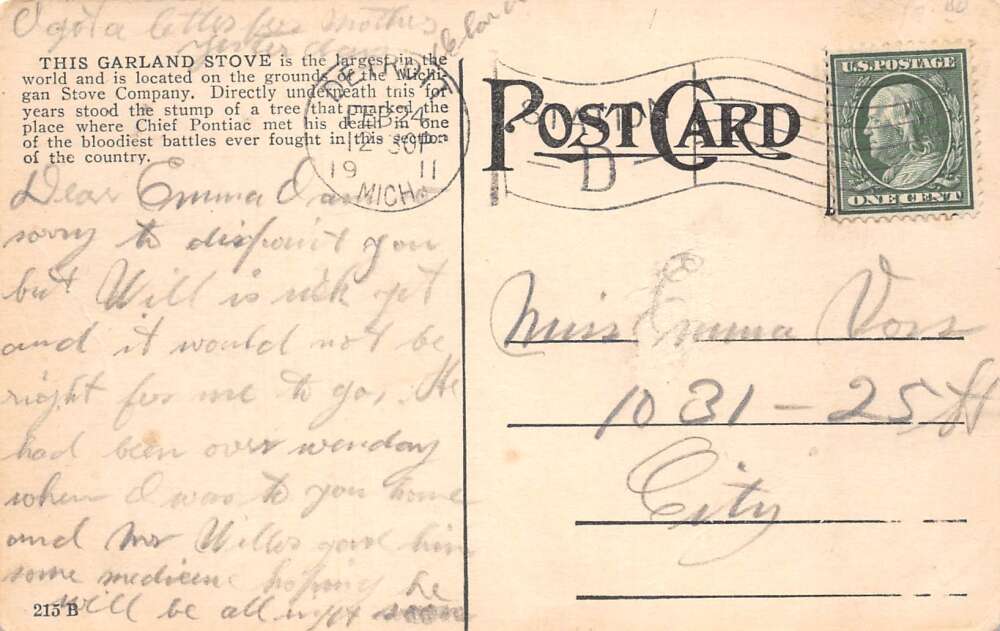 I got a letter from Mother
yester day
THIS GARLAND STOVE is the largest in the
world and is located on the grounds of the Michi-
gan Stove Company. Directly underneath this for
years stood the stump of a tree that marked the
place where Chief Pontiac met his death in one
of the bloodiest battles ever fought in this section
of the country.
DETROIT
FEB 24
12 30P
19 11
MICH.
Dear Emma I am
sorry to dispoint you
but Will is sick yet
and it would not be
right for me to go, He
had been over wenday
when I was to you home
and Mr Willes gave him
some medicene hoping he
will be all right soon
215 B
POST CARD
D
U.S. POSTAGE
ONE CENT
Miss Emma Voss
1031 - 25 St
City